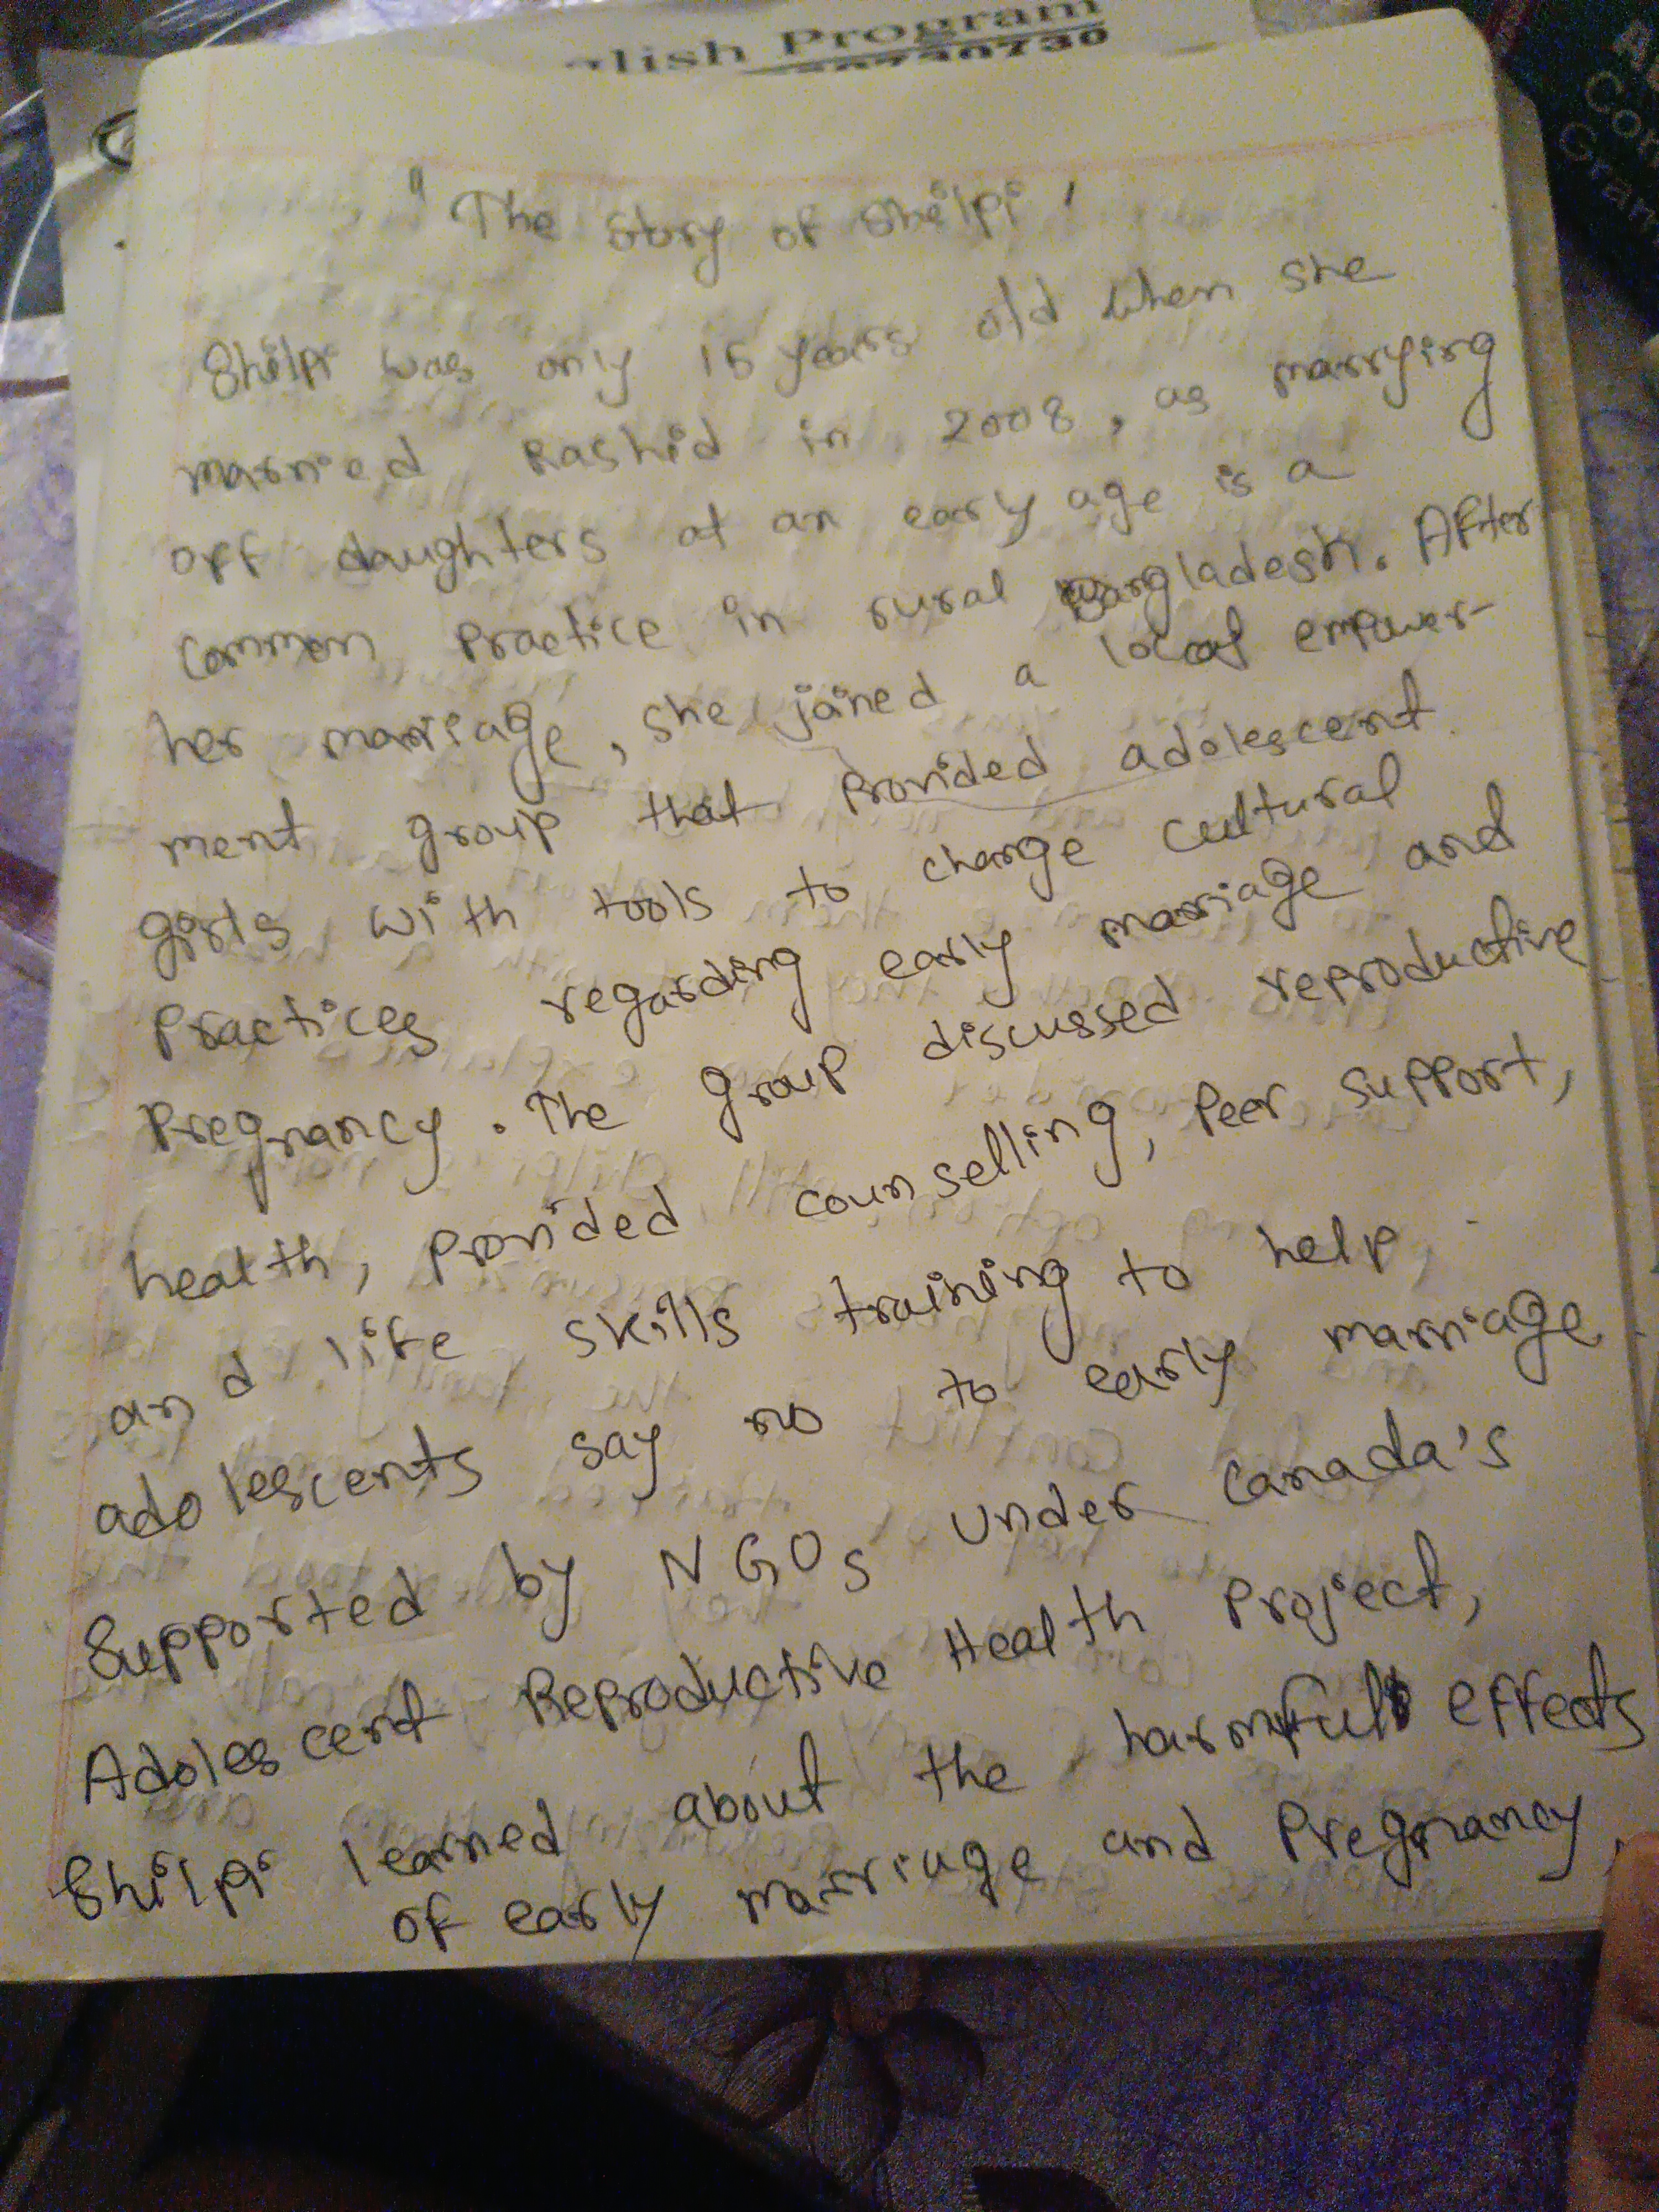 lish Program
"The story of Shilpi'
Shilpi was only 15 years old when she
married Rashid in 2008, as marrying
off daughters at an early age is a
common practice in rural Bangladesh. After
her marriage, she joined a local empower-
ment group that provided adolescent
girls with tools to change cultural
practices regarding early marriage and
pregnancy. The group discussed reproductive
health, provided counselling, peer support,
and life skills training to help
adolescents say no to early marriage
Supported by NGOs under Canada's
Adolescent Reproductive Health Project,
Shilpi learned about the harmful effects
of early marriage and pregnancy.